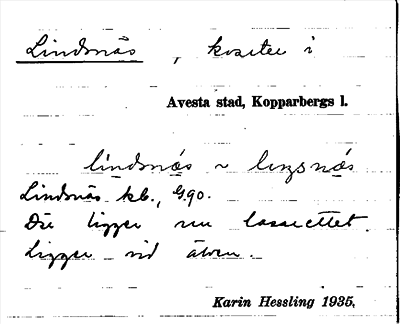 Lindsnäs, kvarter i
Avesta stad, Kopparbergs l.
lindsnæs ~
Lindsnäs kb., G90.
Där ligger nu lasarettet.
Ligger vid älven.
Karin Hessling 1935.